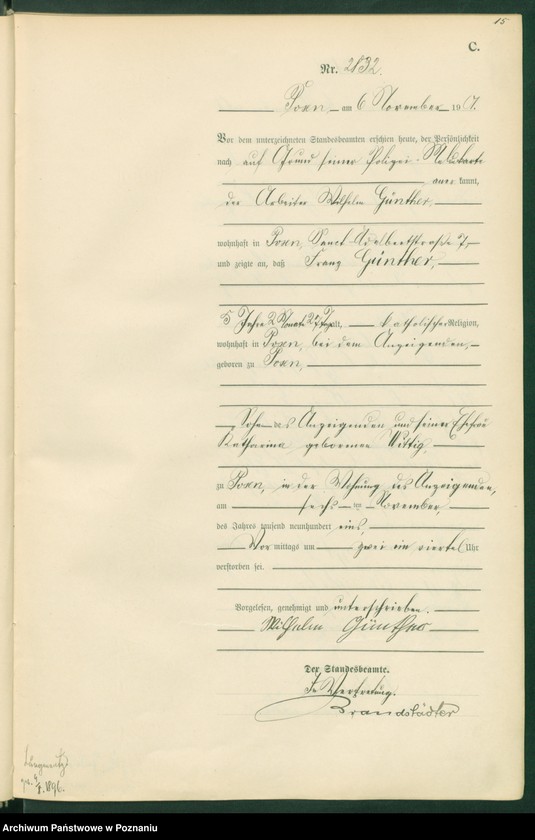 15
C.
Nr. 2832.
Posen, am 6 November 1901.
Vor dem unterzeichneten Standesbeamten erschien heute, der Persönlichkeit
nach auf Grund seiner Polizei-Meldekarte
anerkannt,
der Arbeiter Wilhelm Günther,
wohnhaft in Posen, Sanct Adalbertstraße 7,
und zeigte an, daß Franz Günther,
5 Jahre 2 Monate 27 Tage alt, katholischer Religion,
wohnhaft in Posen, bei dem Anzeigenden,
geboren zu Posen,
Sohn des Anzeigenden und seiner Ehefrau
Katharina geborenen Wittig,
zu Posen, in der Wohnung des Anzeigenden,
am sechsten November,
des Jahres tausend neunhundert eins,
Vormittags um zwei ein viertel Uhr
verstorben sei.
Vorgelesen, genehmigt und unterschrieben.
Wilhelm Günther
Der Standesbeamte.
In Vertretung.
Brandstädter
Archiwum Państwowe w Poznaniu